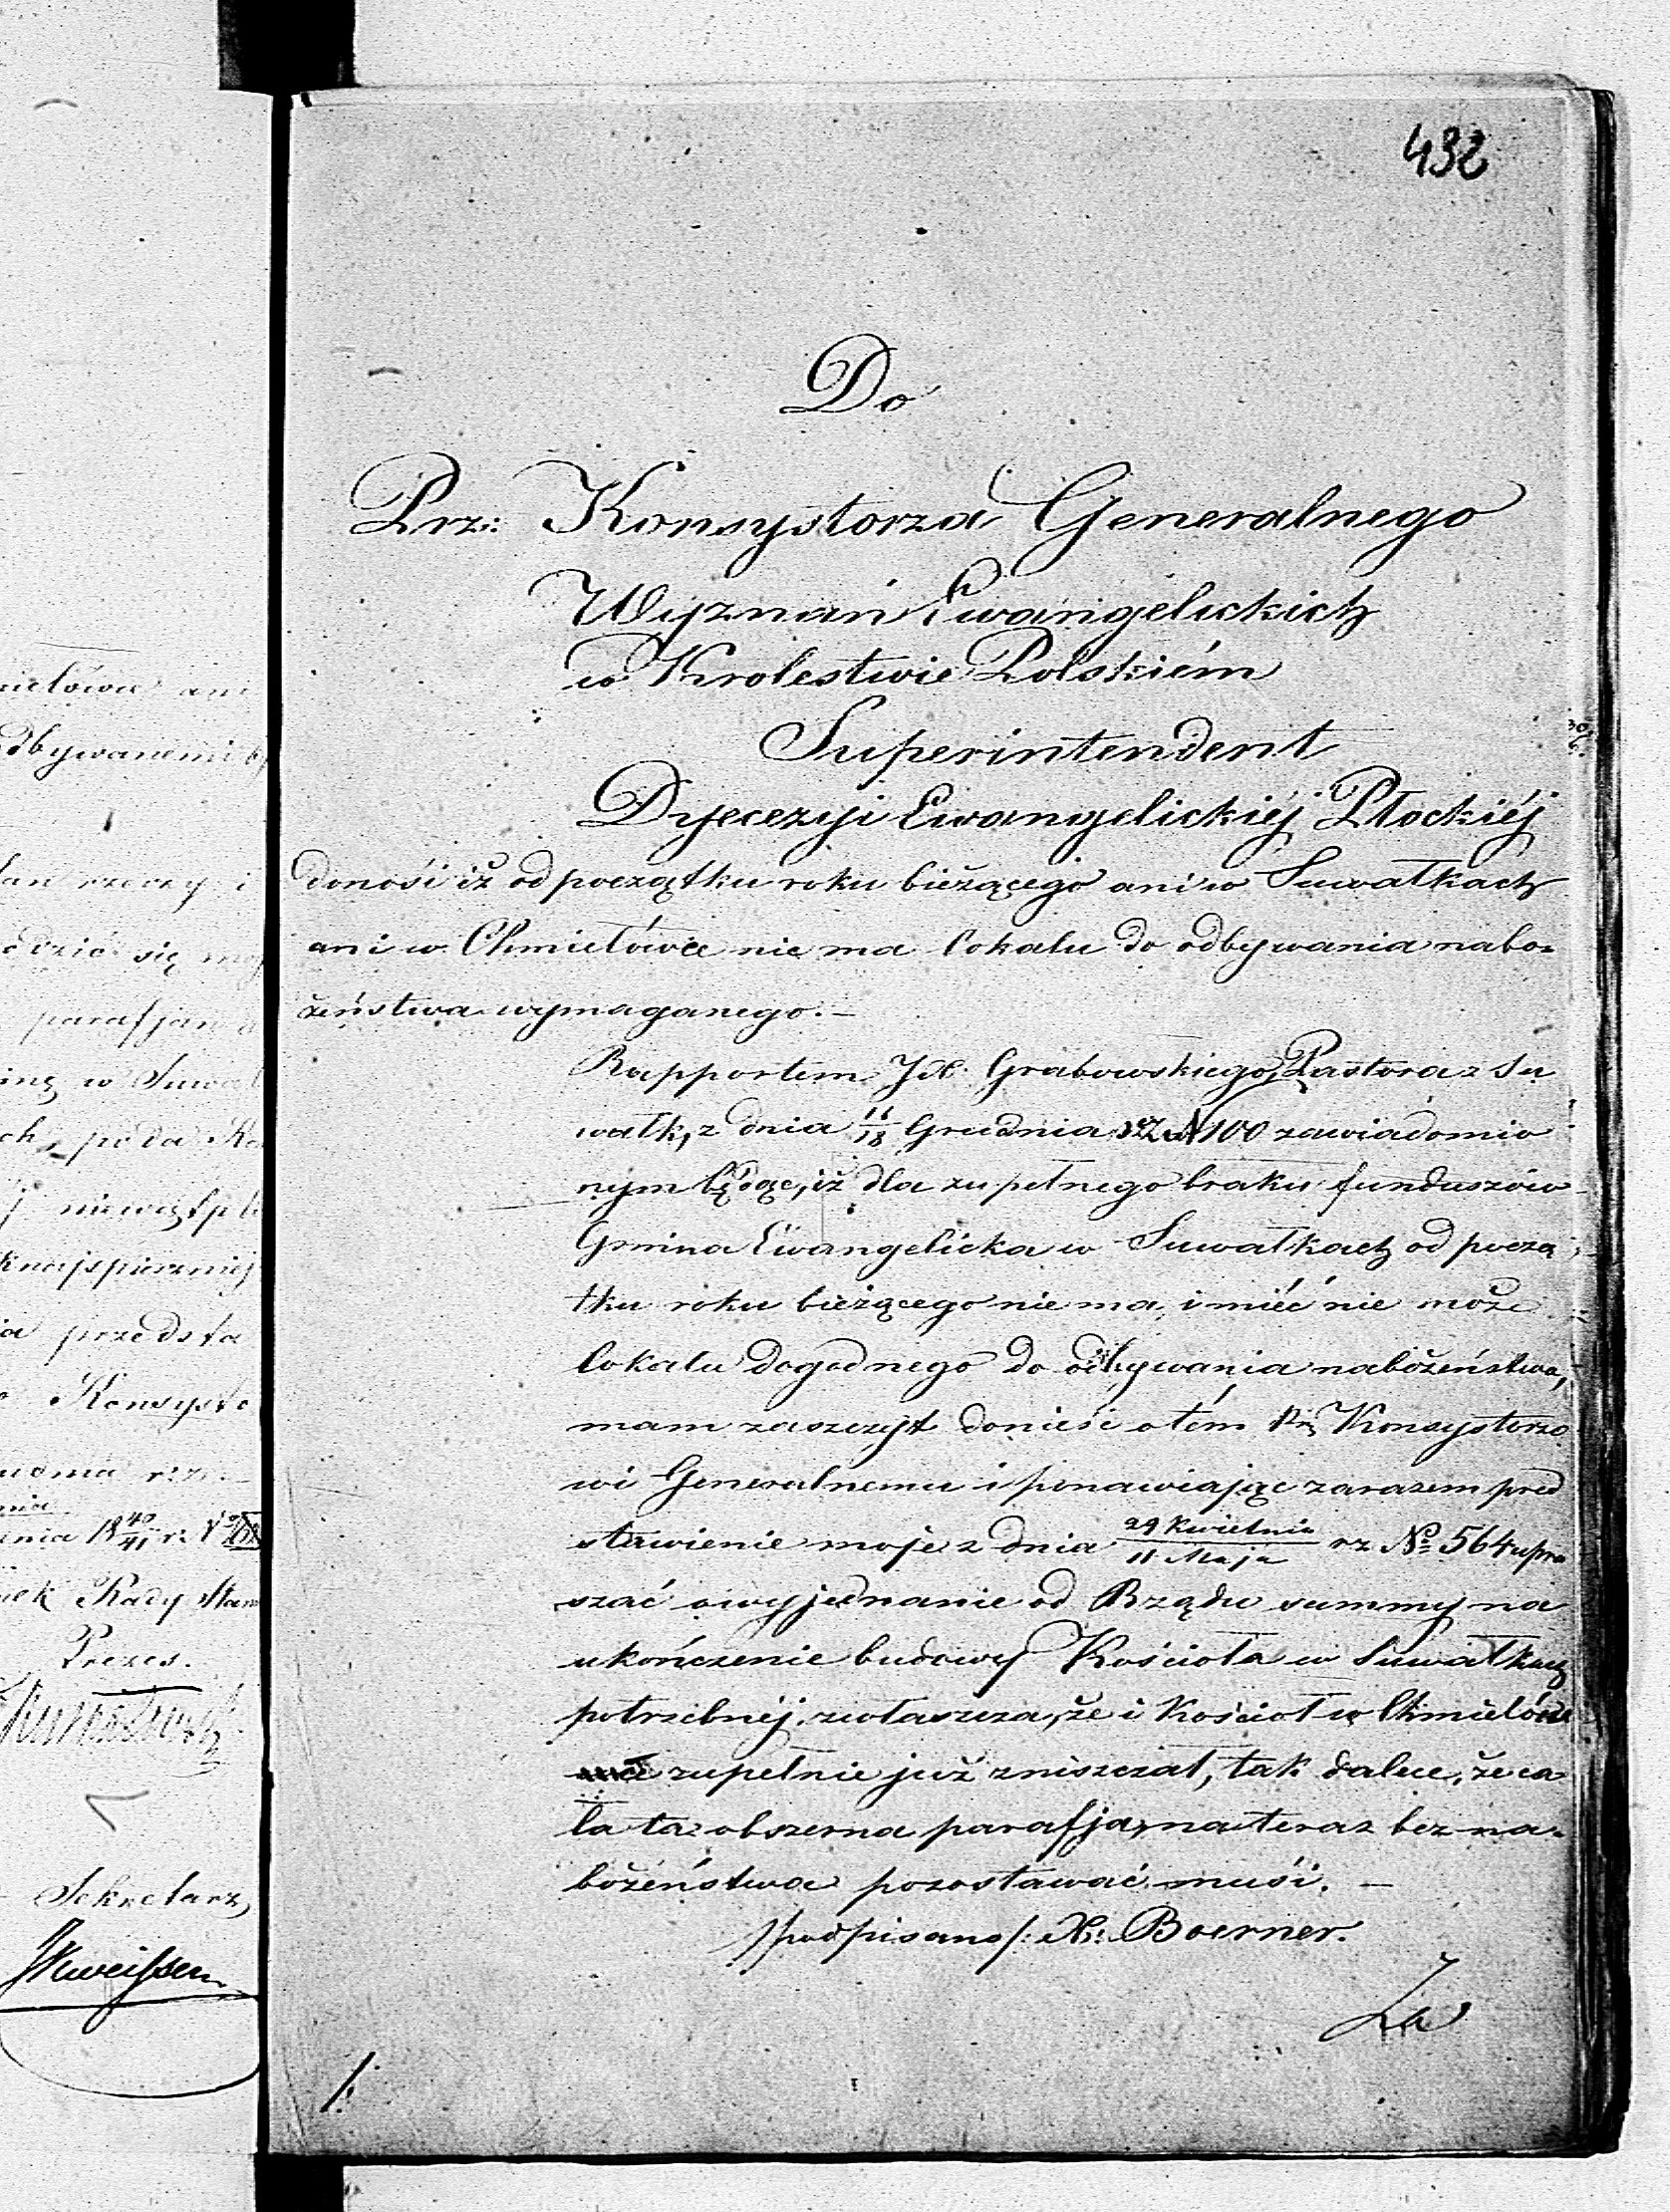 432
Do
Prz: Konsystorza Generalnego
Wyznań Ewangelickich
w Krolestwie Polskiém
Superintendent
Dyecezyi Ewangelickiéj Płockiéj
donosi iż od początku roku bieżącego ani w Suwałkach
ani w Chmielówce nie ma lokalu do odbywania nabo=
żeństwa wymaganego. —
Rapportem JX. Grabowskiego, Pastora z Su
wałk, z dnia 11/18 Grudnia rz. N 100 zawiadomio
nym będąc, iż dla zupełnego braku funduszów
Gmina Ewangelicka w Suwałkach od począ
tku roku bieżącego nie ma, i mieć nie może
lokalu dogodnego do odbywania nabożeństwa,
mam zaszczyt donieść o tém Prz Konsystorzo
wi Generalnemu i ponawiając zarazem pred
stawienie moje z dnia 29 Kwietnia/11 Maja rz No 564 upra
szać o wyjednanie od Rządu summy na
ukończenie budowy Kościoła w Suwałkach
potrzebnéj, zwłaszcza, że i Kościoł w Chmielów
ce zupełnie już zniszczał, tak dalece, że ca
ła ta obszerna parafja, na teraz bez na=
bożeństwa pozostawać musi. —
/podpisano/: X: Boerner.
Za
/.
ani
odbywanemi
rzeczy i
się
parafjan
w Suwał
poda
przedsta
Konsysto
18 40/41 r.
Rady Stanu
Prezes.
Sekretarz